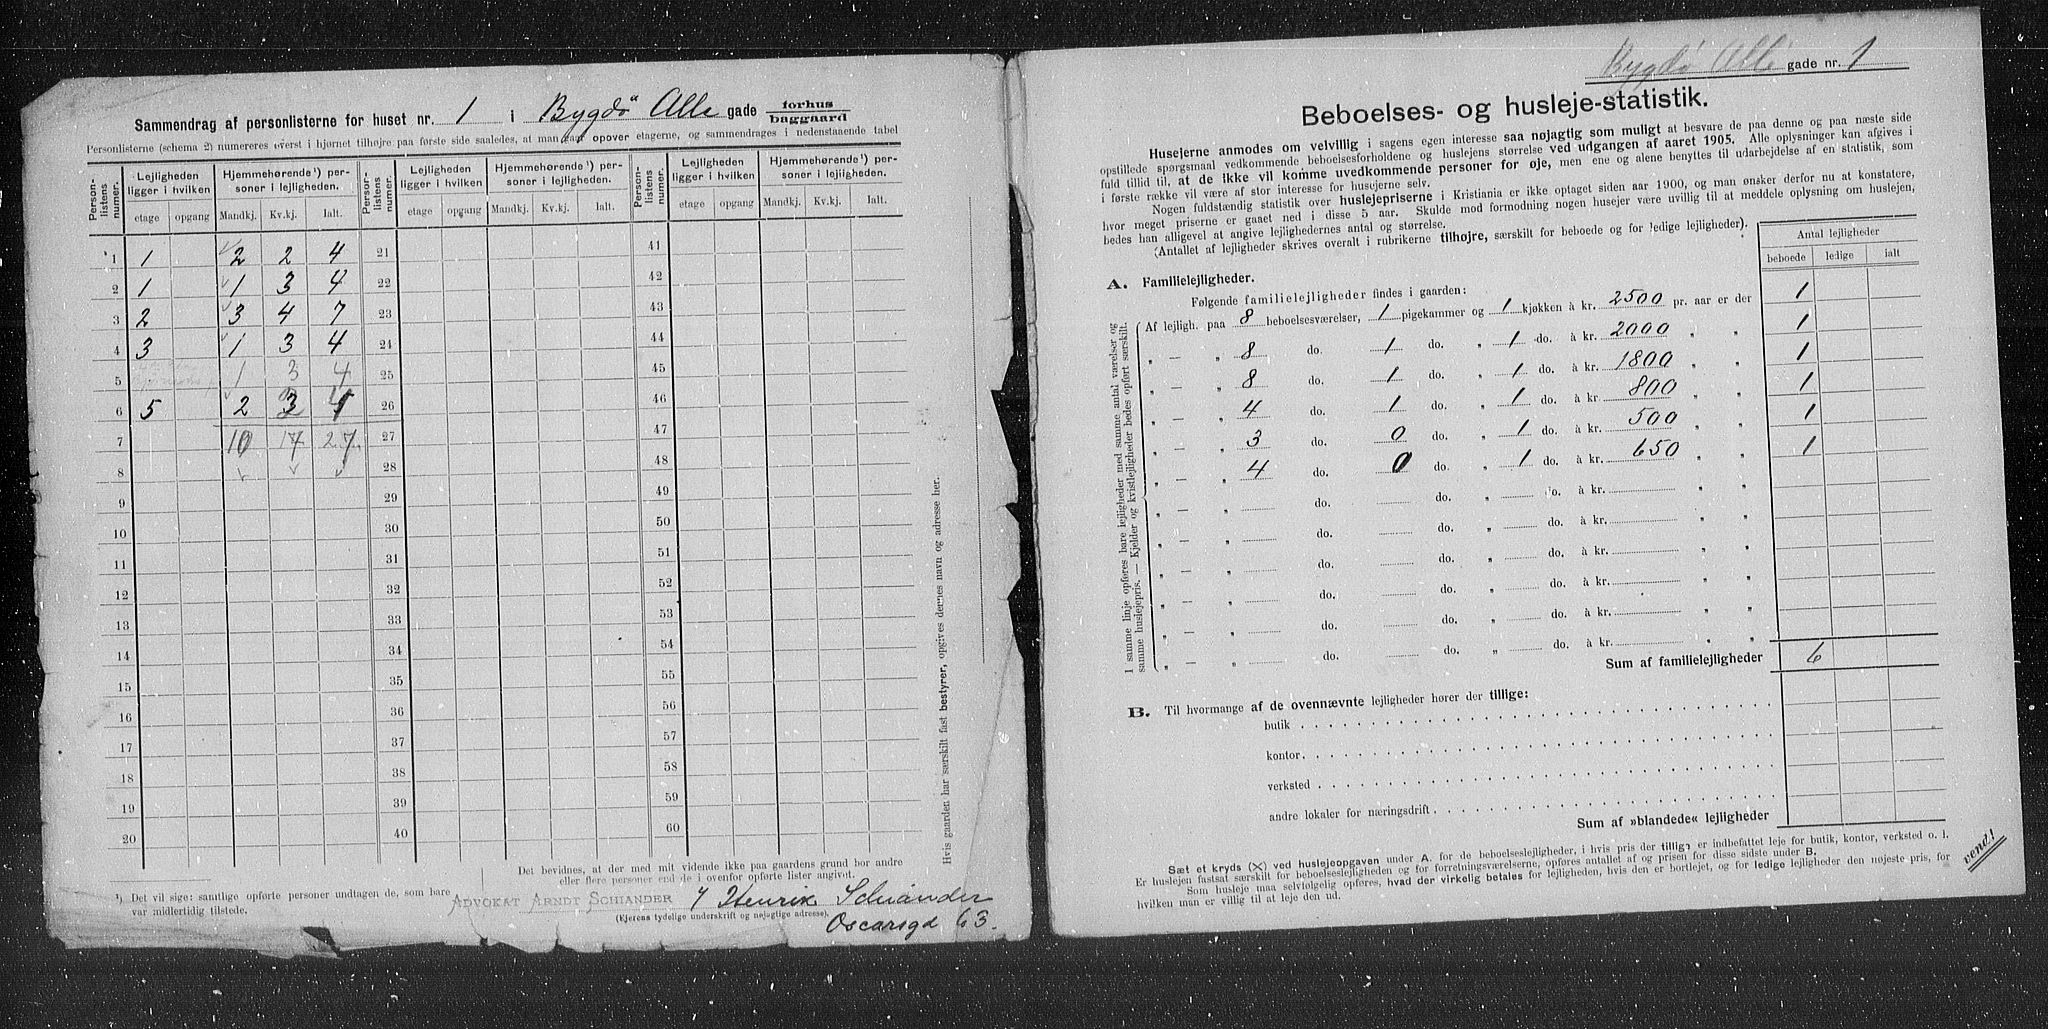 Sammendrag af personlisterne for huset nr. 1 i Bygdö Alle gade forhus baggaard
Personlisterne (schema 2) numereres øverst i hjørnet tilhøjre paa første side saaledes, at man gaar opover etagerne, og sammendrages i nedenstaaende tabel
Person-listens numer. Lejligheden ligger i hvilken Hjemmehørende¹) personer i lejligheden. Person-listens numer. Lejligheden ligger i hvilken Hjemmehørende¹) personer i lejligheden. Person-listens numer. Lejligheden ligger i hvilken Hjemmehørende¹) personer i lejligheden.
etage opgang Mandkj. Kv.kj. Ialt. etage opgang Mandkj. Kv.kj. Ialt. etage opgang Mandkj. Kv.kj. Ialt.
1 1 2 2 4 21 41
2 1 1 3 4 22 42
3 2 3 4 7 23 43
4 3 1 3 4 24 44
5 1 3 4 25 45
6 5 2 3 26 46
7 10 17 27 27 47
8 28 48
9 29 49
10 30 50
11 31 51
12 32 52
13 33 53
14 34 54
15 35 55
16 36 56
17 37 57
18 38 58
19 39 59
20 40 60
Hvis gaarden har særskilt fast bestyrer, opgives dennes navn og adresse her.
Det bevidnes, at der med mit vidende ikke paa gaardens grund bor andre
eller flere personer end de i ovenfor opførte lister angivet.
¹) Det vil sige: samtlige opførte personer undtagen de, som bare
var midlertidig tilstede.
ADVOKAT ARNDT SCHIANDER
Henrik Schiander
(Ejerens tydelige underskrift og nøjagtige adresse).
Oscarsgd 63.
Bygdö Alle gade nr. 1
Beboelses- og husleje-statistik.
Husejerne anmodes om velvillig i sagens egen interesse saa nøjagtig som muligt at besvare de paa denne og paa næste side
opstillede spørgsmaal vedkommende beboelsesforholdene og huslejens størrelse ved udgangen af aaret 1905. Alle oplysninger kan afgives i
fuld tillid til, at de ikke vil komme uvedkommende personer for øje, men ene og alene benyttes til udarbejdelse af en statistik, som
i første række vil være af stor interesse for husejerne selv.
Nogen fuldstændig statistik over huslejepriserne i Kristiania er ikke optaget siden aar 1900, og man ønsker derfor nu at konstatere,
hvor meget priserne er gaaet ned i disse 5 aar. Skulde mod formodning nogen husejer være uvillig til at meddele oplysning om huslejen,
bedes han alligevel at angive lejlighedernes antal og størrelse.
(Antallet af lejligheder skrives overalt i rubrikerne tilhøjre, særskilt for beboede og for ledige lejligheder).
Antal lejligheder
beboede ledige ialt
A. Familielejligheder.
Følgende familielejligheder findes i gaarden:
I samme linje opføres bare lejligheder med samme antal værelser og
samme huslejepris. — Kjelder og kvistlejligheder bedes opført særskilt.
Af lejligh. paa 8 beboelsesværelser, 1 pigekammer og 1 kjøkken à kr. 2500 pr. aar er der 1
„ — „ 8 do. 1 do. „ 1 do. à kr. 2000 „ „ 1
„ — „ 8 do. 1 do. „ 1 do. à kr. 1800 „ „ 1
„ — „ 4 do. 1 do. „ 1 do. à kr. 800 „ „ 1
„ — „ 3 do. 0 do. „ 1 do. à kr. 500 „ „ 1
„ — „ 4 do. 0 do. „ 1 do. à kr. 650 „ „ 1
„ — „ do. do. „ do. à kr. „ „
„ — „ do. do. „ do. à kr. „ „
„ — „ do. do. „ do. à kr. „ „
„ — „ do. do. „ do. à kr. „ „
„ — „ do. do. „ do. à kr. „ „
„ — „ do. do. „ do. à kr. „ „
Sum af familielejligheder 6
B. Til hvormange af de ovennævnte lejligheder hører der tillige:
butik
kontor
verksted
andre lokaler for næringsdrift
Sum af »blandede« lejligheder
Sæt et kryds (×) ved huslejeopgaven under A. for de beboelseslejligheder, i hvis pris der tillige er indbefattet leje for butik, kontor, verksted o. l.
Er huslejen fastsat særskilt for beboelseslejligheden og for forretningsværelserne, opføres antallet af og prisen for disse sidste under B.
Som husleje maa selvfølgelig opføres, hvad der virkelig betales for lejligheden, hvis den er bortlejet, og for ledige lejligheder den nøjeste pris, for
hvilken man er villig til at leje den ud.
vend!